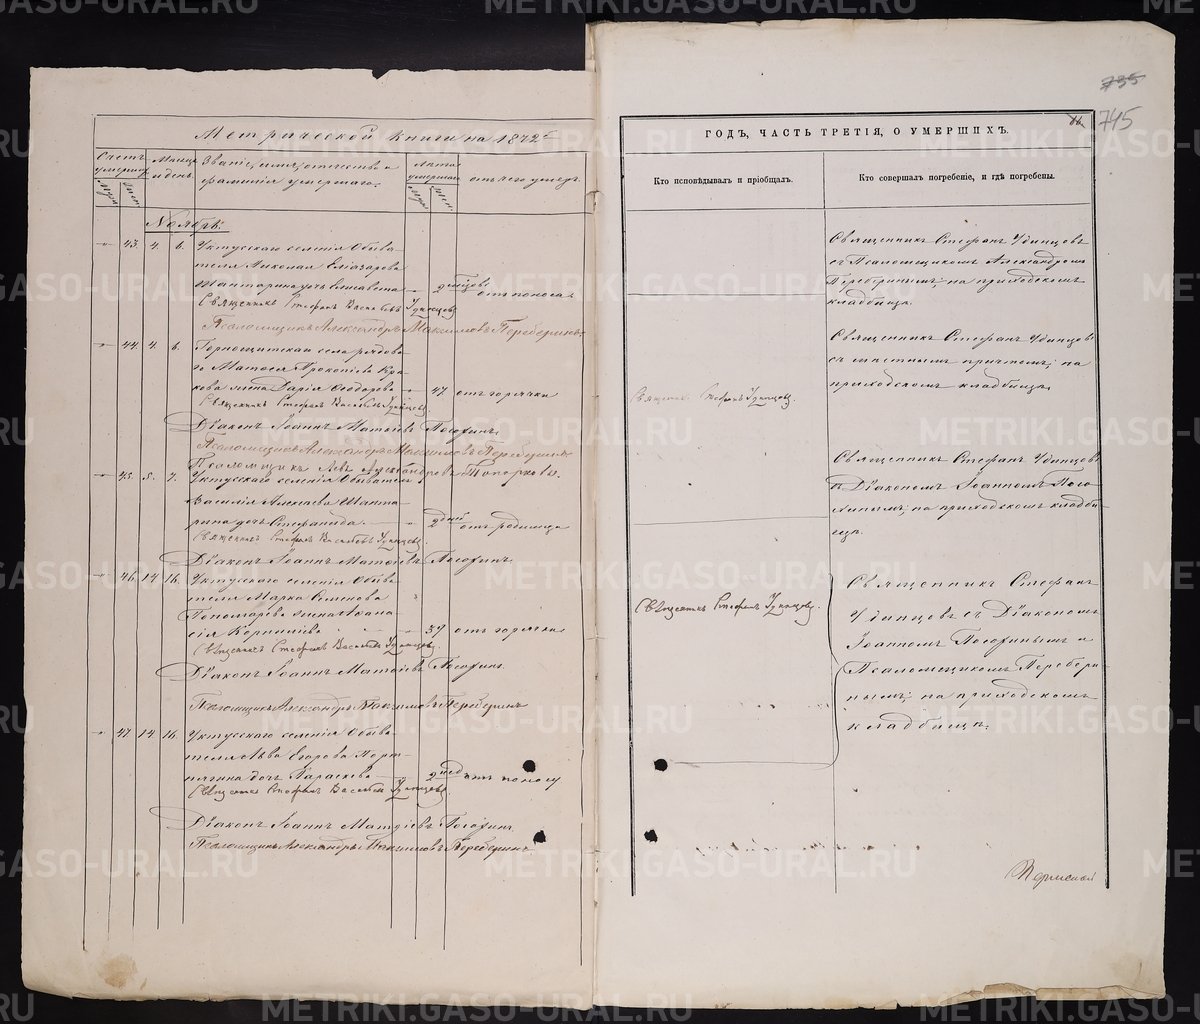 735
745
Метрической книги на 1872 г.
Счетъ умерших
Месяцъ и день.
Званіе, имя, отчество и фамилія умершаго.
Лѣта умершаго
отъ чего умеръ.
Ноябрь.
43. 4. 6. Уктусскаго селенія Обыва-
теля Николая Еліазарова
дочь Елисавета
отъ поноса
Священникъ Стефанъ Васильевъ Удинцовъ
Псаломщикъ Александръ Максимовъ Переберинъ
44. 4. 6. Горнощитскаго села рядова-
го Матоея Прокопіева
жена Дарія Ѳеодорова 47 отъ горячки
Священникъ Стефанъ Васильевъ Удинцовъ
Діаконъ Іоаннъ Матѳіевъ
Псаломщикъ Александръ Максимовъ Переберинъ
Псаломщикъ Левъ Александровъ Топорковъ.
45. 5. 7. Уктусскаго селенія Обывателя
Василія Алексѣева
дочь Стефанида 2 дней отъ родимца
Священникъ Стефанъ Васильевъ Удинцовъ
Діаконъ Іоаннъ Матѳіевъ
46. 14 16. Уктусскаго селенія Обыва-
теля Марка Семенова
Пономарева жена Аѳана-
сія Корниліева 37 отъ горячки
Священникъ Стефанъ Васильевъ Удинцовъ
Діаконъ Іоаннъ Матѳіевъ
Псаломщикъ Александръ Максимовъ Переберинъ
47. 14 16. Уктусскаго селенія Обыва-
теля Льва Егорова Порт-
нягина дочь Параскева 2 нед. отъ поносу
Священникъ Стефанъ Васильевъ Удинцовъ
Діаконъ Іоаннъ Матѳіевъ
Псаломщикъ Александръ Максимовъ Переберинъ
ГОДЪ, ЧАСТЬ ТРЕТІЯ, О УМЕРШИХЪ.
Кто исповѣдывалъ и пріобщалъ.
Кто совершалъ погребеніе, и гдѣ погребены.
Священникъ Стефанъ Удинцовъ
съ Псаломщикомъ Александромъ
Переберинымъ на приходскомъ
кладбищѣ.
Священникъ Стефанъ Удинцовъ
Священникъ Стефанъ Удинцовъ
съ мѣстнымъ причтомъ; на
приходскомъ кладбищѣ.
Священникъ Стефанъ Удинцовъ
съ Діакономъ Іоанномъ
на приходскомъ кладби-
щѣ.
Священникъ Стефанъ Удинцовъ.
Священникъ Стефанъ
Удинцовъ съ Діакономъ
Іоанномъ и
Псаломщикомъ Перебери-
нымъ; на приходскомъ
кладбищѣ.
METRIKI.GASO-URAL.RU